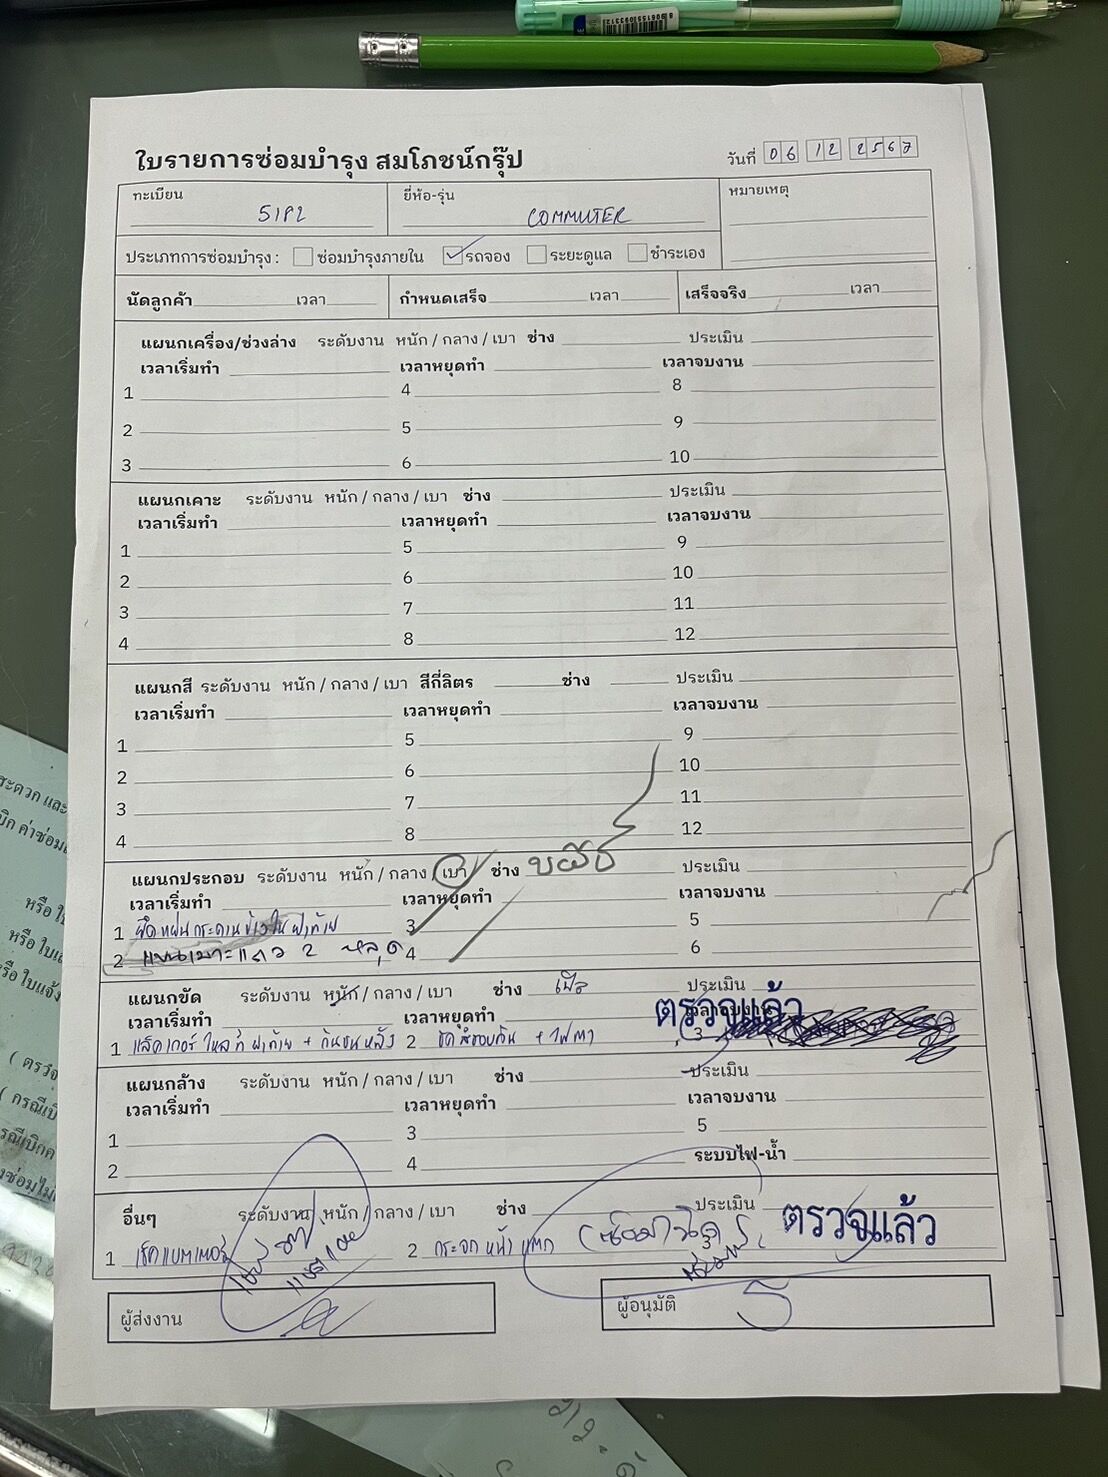 ใบรายการซ่อมบำรุง สมโภชน์กรุ๊ป
วันที่ 06 12 2567
ทะเบียน 5182
ยี่ห้อ-รุ่น COMMUTER
หมายเหตุ
ประเภทการซ่อมบำรุง : ซ่อมบำรุงภายใน รถจอง ระยะดูแล ชำระเอง
นัดลูกค้า เวลา กำหนดเสร็จ เวลา เสร็จจริง เวลา
แผนกเครื่อง/ช่วงล่าง ระดับงาน หนัก / กลาง / เบา ช่าง ประเมิน
เวลาเริ่มทำ เวลาหยุดทำ เวลาจบงาน
1 4 8
2 5 9
3 6 10
แผนกเคาะ ระดับงาน หนัก / กลาง / เบา ช่าง ประเมิน
เวลาเริ่มทำ เวลาหยุดทำ เวลาจบงาน
1 5 9
2 6 10
3 7 11
4 8 12
แผนกสี ระดับงาน หนัก / กลาง / เบา สีกี่ลิตร ช่าง ประเมิน
เวลาเริ่มทำ เวลาหยุดทำ เวลาจบงาน
1 5 9
2 6 10
3 7 11
4 8 12
แผนกประกอบ ระดับงาน หนัก / กลาง / เบา ช่าง ประเมิน
เวลาเริ่มทำ เวลาหยุดทำ เวลาจบงาน
1 3 5
2 แขนเบาะแถว 2 หลุด 4 6
แผนกขัด ระดับงาน หนัก / กลาง / เบา ช่าง ประเมิน
เวลาเริ่มทำ เวลาหยุดทำ ตรวจแล้ว เวลาจบงาน
1 แล็คเกอร์ ไหลที่ ฝาท้าย + กันชนหลัง 2 ขัดสีรอบคัน + ไฟตา 3
แผนกล้าง ระดับงาน หนัก / กลาง / เบา ช่าง ประเมิน
เวลาเริ่มทำ เวลาหยุดทำ เวลาจบงาน
1 3 5
2 4 ระบบไฟ-น้ำ
อื่นๆ ระดับงาน หนัก / กลาง / เบา ช่าง ประเมิน ตรวจแล้ว
1 เช็คแบตเตอรี่ 2 กระจกหน้าแตก 3
ผู้ส่งงาน ผู้อนุมัติ